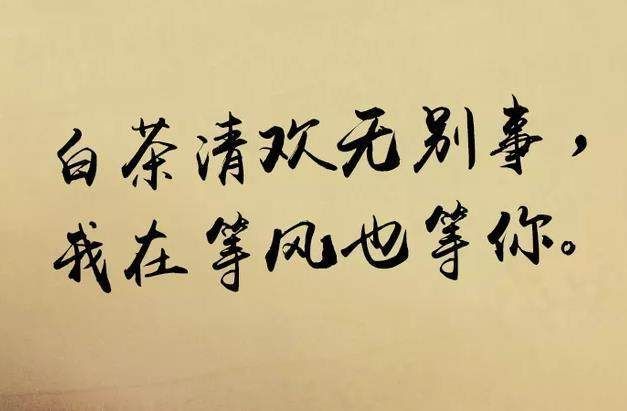 白茶清欢无别事，
我在等风也等你。